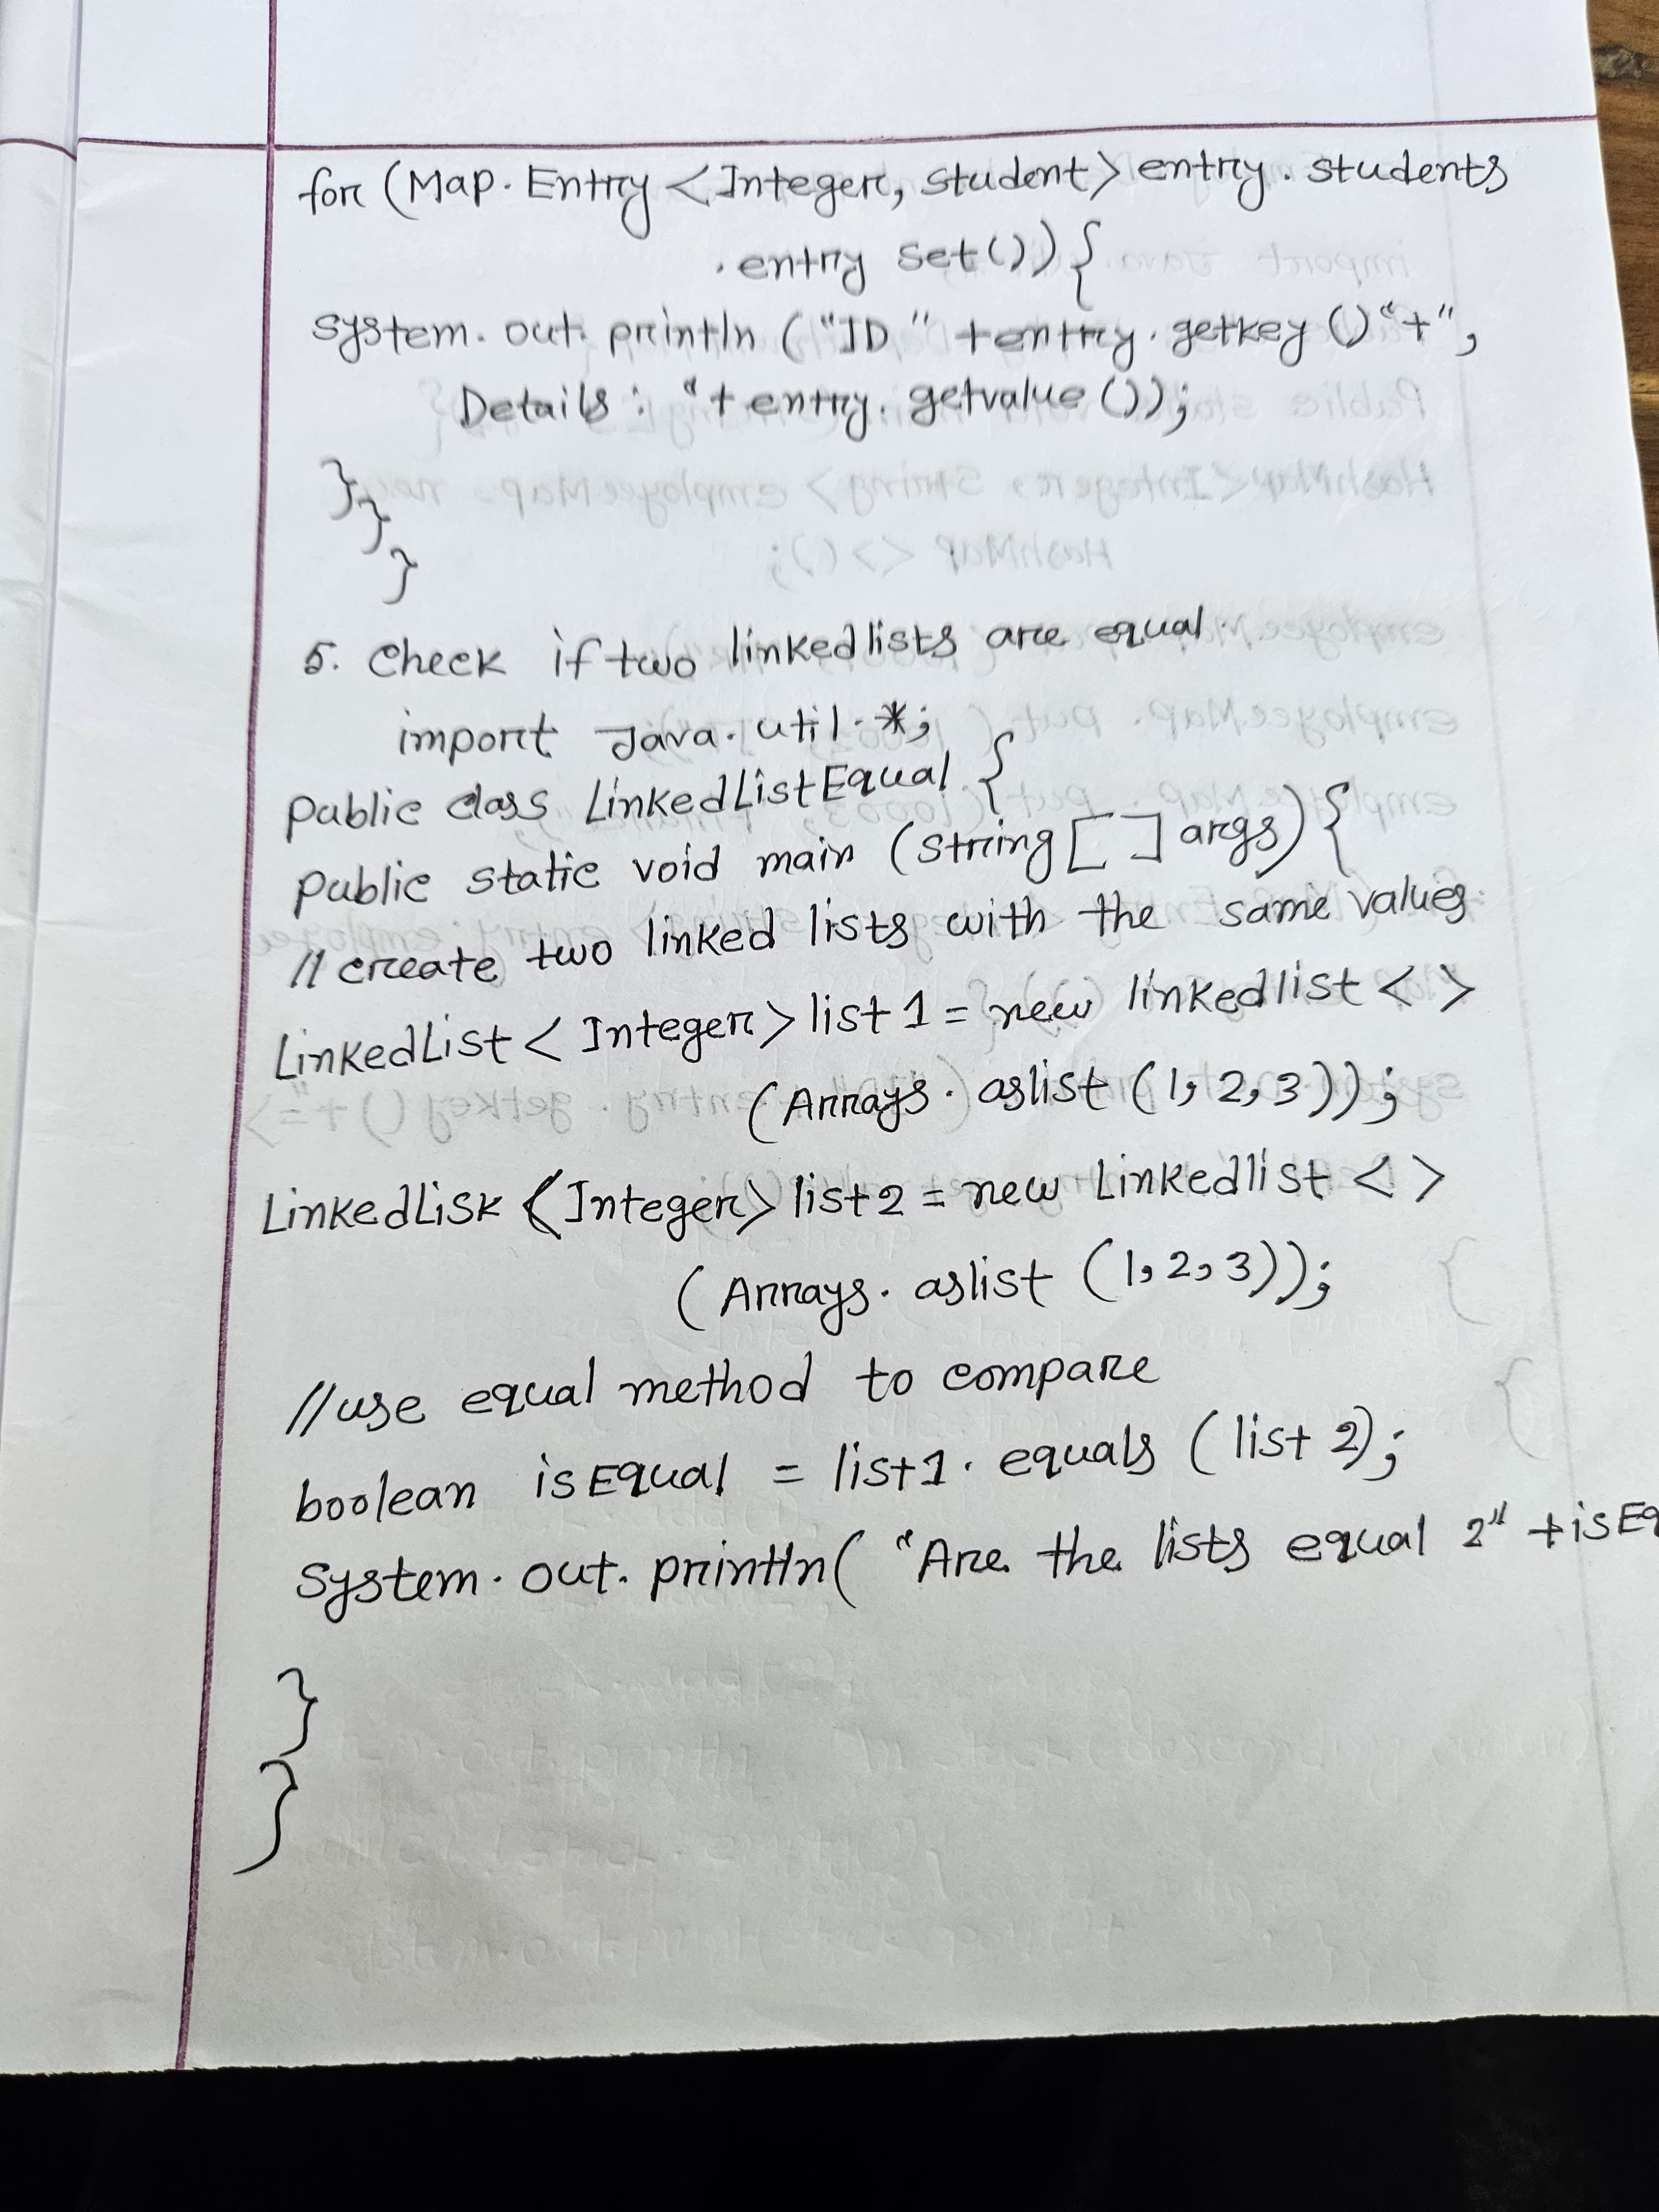 for (Map. Entry <Integer, student> entry. students
.entry set()){
system. out. println ("ID" +entry. getkey ()"+",
Details: "+entry. getvalue ());
}
}
}
5. Check if two linkedlists are equal.
import Java. util. *;
public class LinkedListEqual {
public static void main (string [] args){
// create two linked lists with the same values
LinkedList < Integer> list1 = new linkedlist < >
(Arrays. aslist (1, 2, 3));
LinkedLisk <Integer> list2 = new Linkedlist < >
(Arrays. aslist (1,2,3));
//use equal method to compare
boolean isEqual = list1. equals (list 2);
System. out. println( "Are the lists equal 2" +isEq
}
}